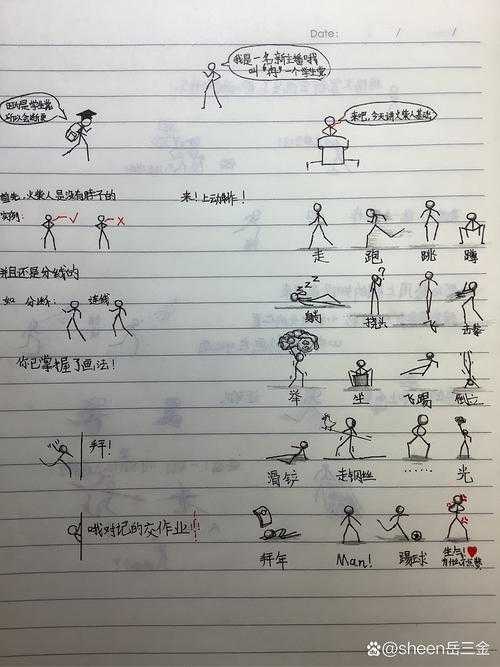 Date: / /
我是一名新主播哦
叫“冉”一个学生党
因为是学生党
所以会断更
来吧,今天讲火柴人基础
首先,火柴人是没有脖子的
来!上动作!
实例:
走 跑 跳 蹲
并且还是分线的
如 分断: 连线
躺 挠头 飞 击拳
你已掌握了画法!
举 坐 飞踢 倒立
拜!
滑铲 走钢丝 …… 光
哦对记的交作业!!!
拜年 Man! 踢球 生气!
@sheen岳三金